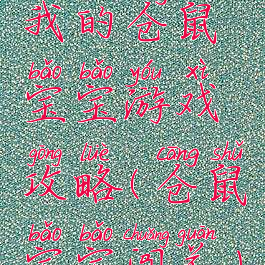 我的仓鼠
bǎo bǎo yóu xì
宝宝游戏
gōng lüè cāng shǔ
攻略(仓鼠
bǎo bǎo chuǎng guān
宝宝闯关)